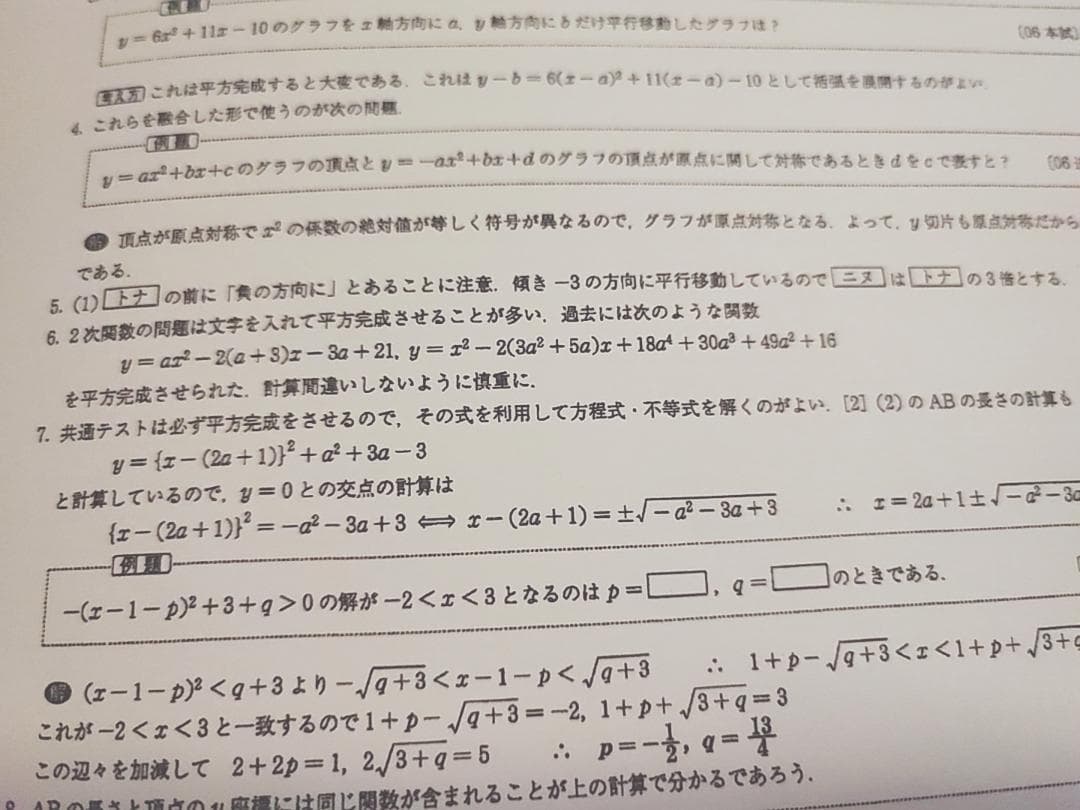 例題
y=6x²+11x−10のグラフをx軸方向にa, y軸方向にbだけ平行移動したグラフは？ 〔06 本試〕
考え方 これは平方完成すると大変である. これは y−b=6(x−a)²+11(x−a)−10として括弧を展開するのがよい.
4. これらを融合した形で使うのが次の問題.
例題
y=ax²+bx+cのグラフの頂点とy=−ax²+bx+dのグラフの頂点が原点に関して対称であるときdをcで表すと？ 〔06
解 頂点が原点対称でx²の係数の絶対値が等しく符号が異なるので, グラフが原点対称となる. よって, y切片も原点対称だから
である.
5. (1) トナ の前に「負の方向に」とあることに注意. 傾き−3の方向に平行移動しているので ニヌ は トナ の3倍とする.
6. 2次関数の問題は文字を入れて平方完成させることが多い. 過去には次のような関数
y=ax²−2(a+3)x−3a+21, y=x²−2(3a²+5a)x+18a⁴+30a³+49a²+16
を平方完成させられた. 計算間違いしないように慎重に.
7. 共通テストは必ず平方完成をさせるので, その式を利用して方程式・不等式を解くのがよい. [2] (2) のABの長さの計算も
y={x−(2a+1)}²+a²+3a−3
と計算しているので, y=0との交点の計算は
{x−(2a+1)}²=−a²−3a+3 ⟺ x−(2a+1)=±√(−a²−3a+3) ∴ x=2a+1±√(−a²−3a
例題
−(x−1−p)²+3+q>0の解が−2<x<3となるのはp=□, q=□のときである.
解 (x−1−p)²<q+3より−√(q+3)<x−1−p<√(q+3) ∴ 1+p−√(q+3)<x<1+p+√(3+q
これが−2<x<3と一致するので1+p−√(q+3)=−2, 1+p+√(3+q)=3
この辺々を加減して 2+2p=1, 2√(3+q)=5 ∴ p=−1/2, q=13/4
8. ABの長さと頂点のy座標には同じ関数が含まれることが上の計算で分かるであろう.